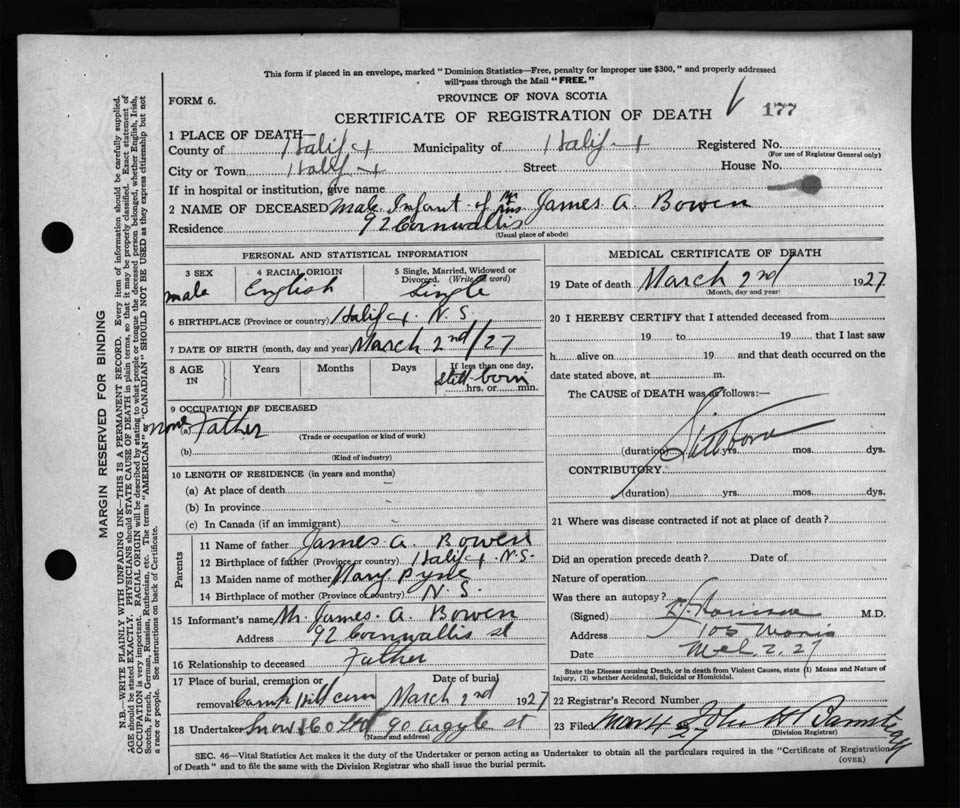 This form if placed in an envelope, marked "Dominion Statistics—Free, penalty for improper use $300," and properly addressed
will pass through the Mail "FREE."
FORM 6.
PROVINCE OF NOVA SCOTIA
CERTIFICATE OF REGISTRATION OF DEATH
177
1 PLACE OF DEATH—
County of Halifax Municipality of Halifax Registered No.
(For use of Registrar General only)
City or Town Halifax Street House No.
If in hospital or institution, give name
2 NAME OF DECEASED Male Infant of Mr Mrs James A. Bowen
Residence 92 Cornwallis
(Usual place of abode)
PERSONAL AND STATISTICAL INFORMATION
3 SEX 4 RACIAL ORIGIN 5 Single, Married, Widowed or Divorced. (Write the word)
male English Single
6 BIRTHPLACE (Province or country) Halifax N.S.
7 DATE OF BIRTH (month, day and year) March 2nd/27
8 AGE IN Years Months Days If less than one day,
still born
hrs. or min.
9 OCCUPATION OF DECEASED
none (a) Father
(Trade or occupation or kind of work)
(b)
(Kind of industry)
10 LENGTH OF RESIDENCE (in years and months)
(a) At place of death
(b) In province
(c) In Canada (if an immigrant)
Parents
11 Name of father James A. Bowen
12 Birthplace of father (Province or country) Halifax N.S.
13 Maiden name of mother Mary Pyne
14 Birthplace of mother (Province or Country) N.S.
15 Informant's name Mr. James A. Bowen
Address 92 Cornwallis st
16 Relationship to deceased Father
17 Place of burial, cremation or removal Camp Hill cem Date of burial March 2nd 1927
18 Undertaker Snow & Co Ltd 90 Argyle st
(Name and address)
MEDICAL CERTIFICATE OF DEATH
19 Date of death March 2nd 1927
(Month, day and year)
20 I HEREBY CERTIFY that I attended deceased from
19 to 19 that I last saw
h alive on 19 and that death occurred on the
date stated above, at m.
The CAUSE of DEATH was as follows:
Stillborn
(duration) yrs. mos. dys.
CONTRIBUTORY.
(duration) yrs. mos. dys.
21 Where was disease contracted if not at place of death?
Did an operation precede death? Date of
Nature of operation
Was there an autopsy?
(Signed) M.D.
Address 105 Morris
Date Mch 2, 27
State the Disease causing Death, or in death from Violent Causes, state (1) Means and Nature of
Injury, (2) whether Accidental, Suicidal or Homicidal.
22 Registrar's Record Number
23 Filed Mar 4 27 John H
(Division Registrar)
SEC. 46—Vital Statistics Act makes it the duty of the Undertaker or person acting as Undertaker to obtain all the particulars required in the "Certificate of Registration
of Death" and to file the same with the Division Registrar who shall issue the burial permit.
(OVER)
MARGIN RESERVED FOR BINDING
N.B.—WRITE PLAINLY WITH UNFADING INK—THIS IS A PERMANENT RECORD. Every item of information should be carefully supplied.
AGE should be stated EXACTLY. PHYSICIANS should STATE CAUSE OF DEATH in plain terms, so that it may be properly classified. Exact statement of
OCCUPATION is very important. RACIAL ORIGIN will be described by stating to what people or tongue the deceased person belonged, whether English, Irish,
Scotch, French, German, Russian, Ruthenian, etc. The terms "AMERICAN" or "CANADIAN" SHOULD NOT BE USED as they express citizenship but not
a race or people. See instructions on back of Certificate.